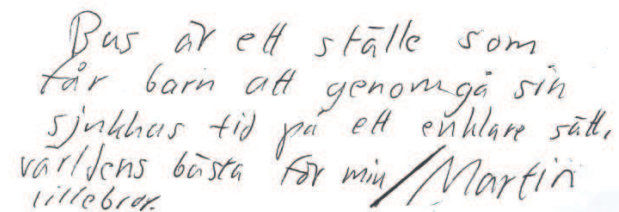 Bus är ett ställe som
får barn att genomgå sin
sjukhus tid på ett enklare sätt,
världens bästa för min / Martin
lillebror.